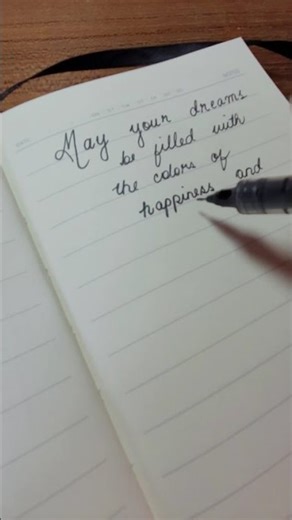 May your dreams
be filled with
the colors of
happiness and